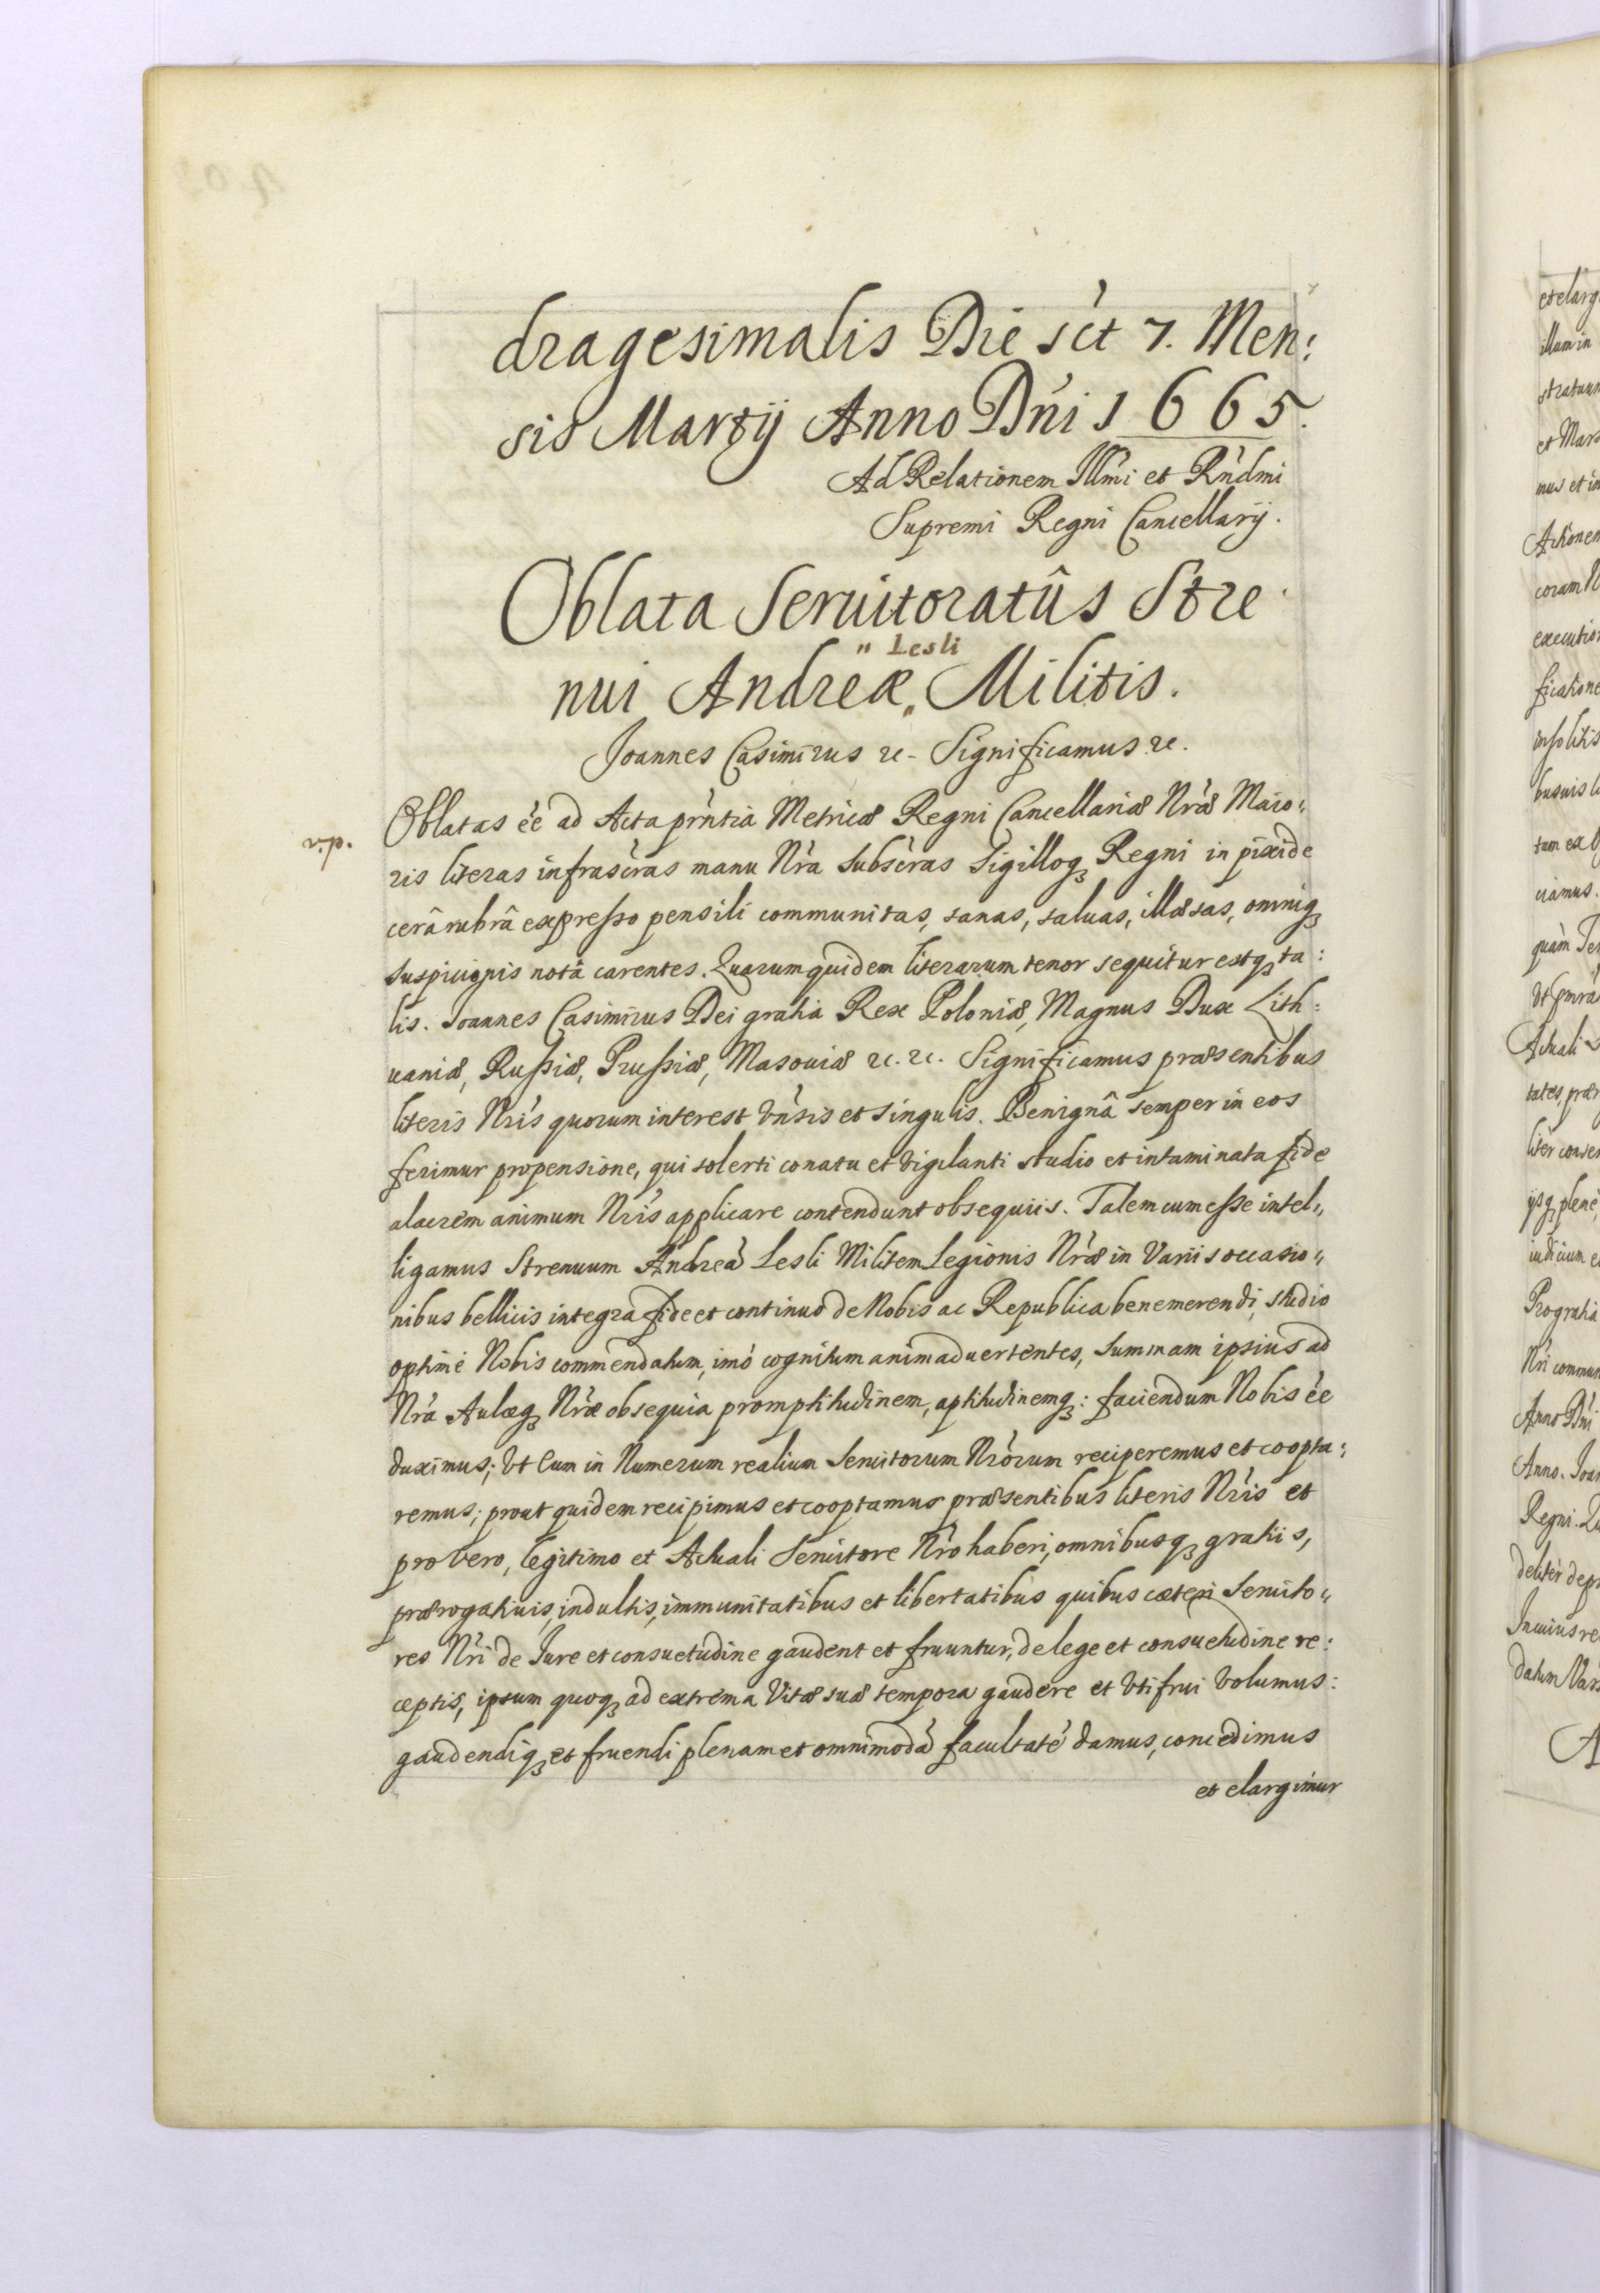 dragesimalis Die sct 7. Men:
sis Martij Anno Dni 1665.
Ad Relationem Illmi et Rndmi
Supremi Regni Cancellarij.
Oblata Seruitoratûs Stre
" Lesli
nui Andreæ „ Militis.
Joannes Casimirus etc - Significamus etc.
Oblatas ée ad Acta prntia Metricæ Regni Cancellariæ Nræ Maio„
ris literas infrascras manu Nra Subscras Sigilloq Regni in pixide
cerâ rubrâ expresso pensili communitas, sanas, saluas, illæsas, omniq
suspicionis notâ carentes. Quarum quidem literarum tenor sequitur estq ta:
lis. Joannes Casimirus Dei gratia Rex Poloniæ, Magnus Dux Lith:
uaniæ, Russiæ, Prussiæ, Masouiæ etc. etc. Significamus præsentibus
literis Nris quorum interest Vnsis et singulis. Benignâ semper in eos
ferimur propensione, qui solerti conatu et Vigilanti studio et intaminata fide
alacrem animum Nris applicare contendunt obsequiis. Talem cum esse intel„
ligamus Strenuum Andreã Lesli Militem Legionis Nræ in Variis occasio„
nibus bellicis integra fide et continuo de Nobis ac Republica benemerendi, studio
optimè Nobis commendatum, imò cognitum animaduertentes, Summam ipsius ad
Nra Aulæq Nræ obsequia promptitudinem, aptitudinemq: faciendum Nobis ée
duximus; Vt Eum in Numerum realium Seruitorum Nrorum reciperemus et coopta:
remus; prout quidem recipimus et cooptamus præsentibus literis Nris et
pro Vero, legitimo et Actuali Seruitore Nro haberi, omnibusq gratiis,
prærogatiuis, indultis, immunitatibus et libertatibus quibus cæteri Seruito„
res Nri de Jure et consuetudine gaudent et fruuntur, de lege et consuetudine re:
ceptis, ipsum quoq ad extrema Vitæ suæ tempora gaudere et Vti frui Volumus:
gaudendiq et fruendi plenam et omnimodã facultatẽ damus, concedimus
et elargimur